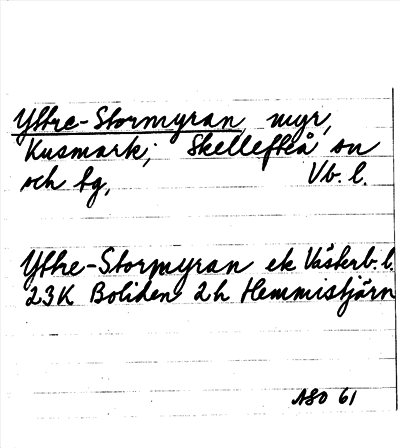 Yttre-Stormyran, myr,
Kusmark; Skellefteå sn
och tg, Vb. l.
Yttre-Stormyran ek Västerb. l.
23K Boliden 2h Hemmistjärn
ASO 61